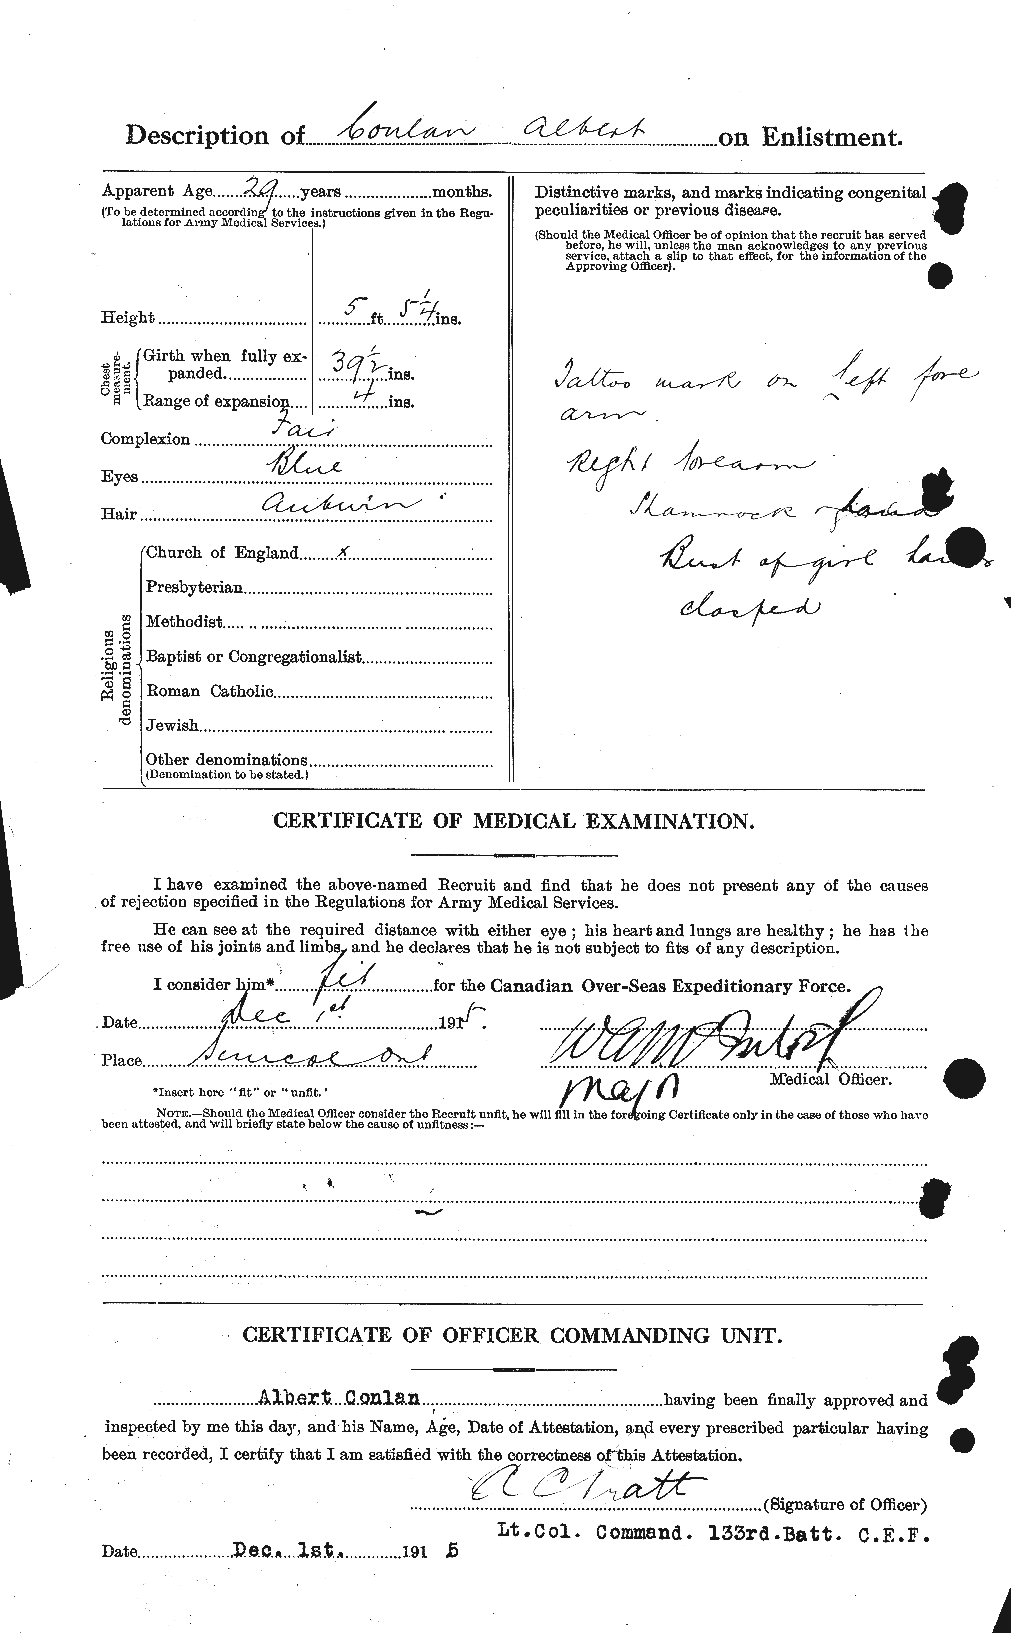 Description of Conlan Albert on Enlistment.
Apparent Age 29 years months.
(To be determined according to the instructions given in the Regu-
lations for Army Medical Services.)
Height 5 ft. 5 1/4 ins.
Chest measure-ment.
Girth when fully ex-
panded 39 1/2 ins.
Range of expansion 4 ins.
Complexion Fair
Eyes Blue
Hair Auburn
Religious denominations
Church of England x
Presbyterian
Methodist
Baptist or Congregationalist
Roman Catholic
Jewish
Other denominations
(Denomination to be stated.)
Distinctive marks, and marks indicating congenital
peculiarities or previous disease.
(Should the Medical Officer be of opinion that the recruit has served
before, he will, unless the man acknowledges to any previous
service, attach a slip to that effect, for the information of the
Approving Officer).
Tattoo mark on left fore
arm.
Right forearm
Shamrock
Bust of girl
clasped
CERTIFICATE OF MEDICAL EXAMINATION.
I have examined the above-named Recruit and find that he does not present any of the causes
of rejection specified in the Regulations for Army Medical Services.
He can see at the required distance with either eye; his heart and lungs are healthy; he has the
free use of his joints and limbs, and he declares that he is not subject to fits of any description.
I consider him* fit for the Canadian Over-Seas Expeditionary Force.
Date Dec 1st 1915.
Place Simcoe Ont
Major
Medical Officer.
*Insert here "fit" or "unfit."
NOTE.—Should the Medical Officer consider the Recruit unfit, he will fill in the foregoing Certificate only in the case of those who have
been attested, and will briefly state below the cause of unfitness:—
CERTIFICATE OF OFFICER COMMANDING UNIT.
Albert Conlan having been finally approved and
inspected by me this day, and his Name, Age, Date of Attestation, and every prescribed particular having
been recorded, I certify that I am satisfied with the correctness of this Attestation.
A C Pratt (Signature of Officer)
Lt.Col. Command. 133rd.Batt. C.E.F.
Date Dec. 1st. 1915